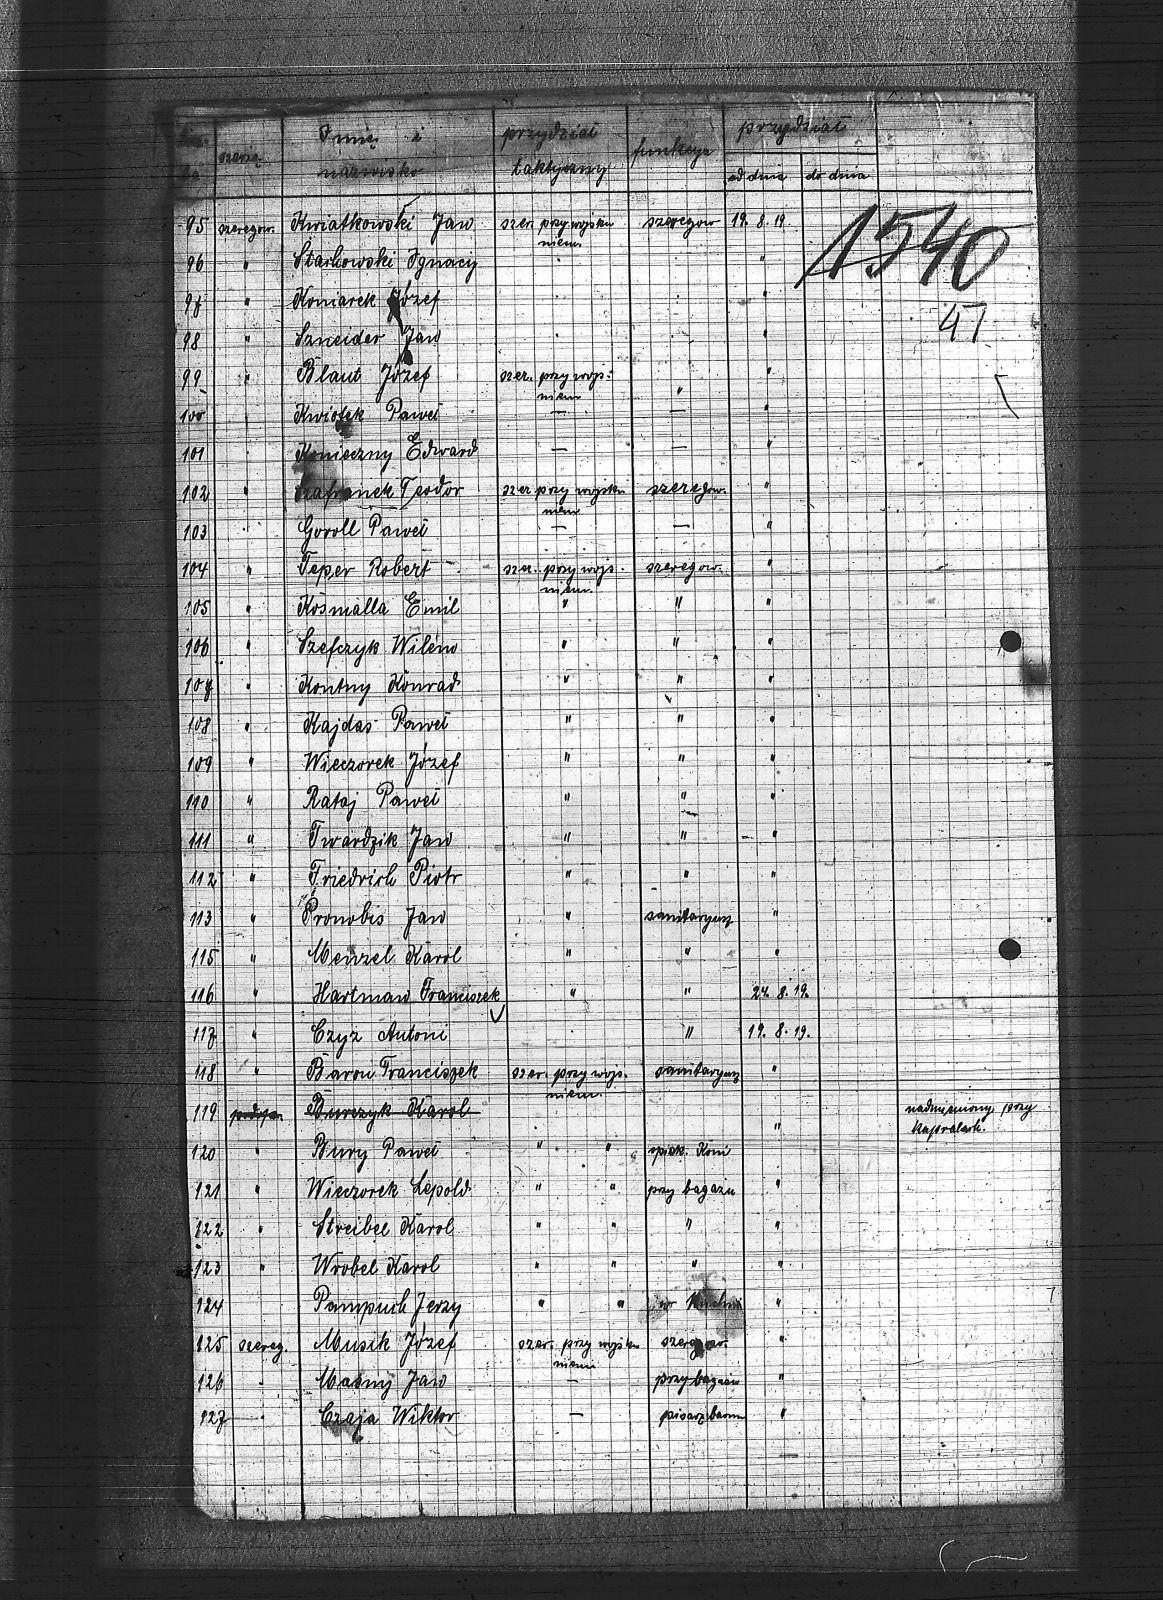 szarża Imię i przydział funkcja przydział
nazwisko taktyczny od dnia do dnia
95 szeregow. Kwiatkowski Jan szer. przy wojsku szeregow 19. 8. 19.
niem.
1540
96 " Starkowski Ignacy "
97 " Koniarek Józef "
47
98 " Szneider Jan "
99 " Blaut Józef szer. przy wojs. " "
niem
100 Kwiotek Paweł — — "
101 Konieczny Edward — — "
102 " Szafranek Teodor szer przy wojsku szeregow. "
niem
103 Goroll Paweł — — "
104 " Teper Robert szer. przy wojs. szeregow. "
niem.
105 " Kosmalla Emil " " "
106 " Szefczyk Wilém " " "
107 " Kontny Konrad " " "
108 " Kajdas Paweł " " "
109 " Wieczorek Józef " " "
110 " Rataj Paweł " " "
111 " Twardzik Jan " " "
112 " Friedrich Piotr " " "
113 " Pronobis Jan " sanitaryusz "
115 " Menzel Karol " " "
116 " Hartman Franciszek " " 24. 8. 19.
117 " Czyz Antoni " 19. 8. 19.
118 " Baron Franciszek szer. przy wojs. sanitaryusz "
niem.
119 Burczyk Karol " nadmieniony przy
kapralach.
120 " Bury Paweł " " opiek. Koni
121 " Wieczorek Lepold. " " przy bagażu "
122 " Streibel Karol " " " "
123 " Wrobel Karol " " " "
124 Pampuch Jerzy " " w kuchni "
125 szereg. Musik Józef szer. przy wojsku szeregow. "
niem
126 Masny Jan — przy bagażu "
127 Czaja Wiktor — pisarz baonu "